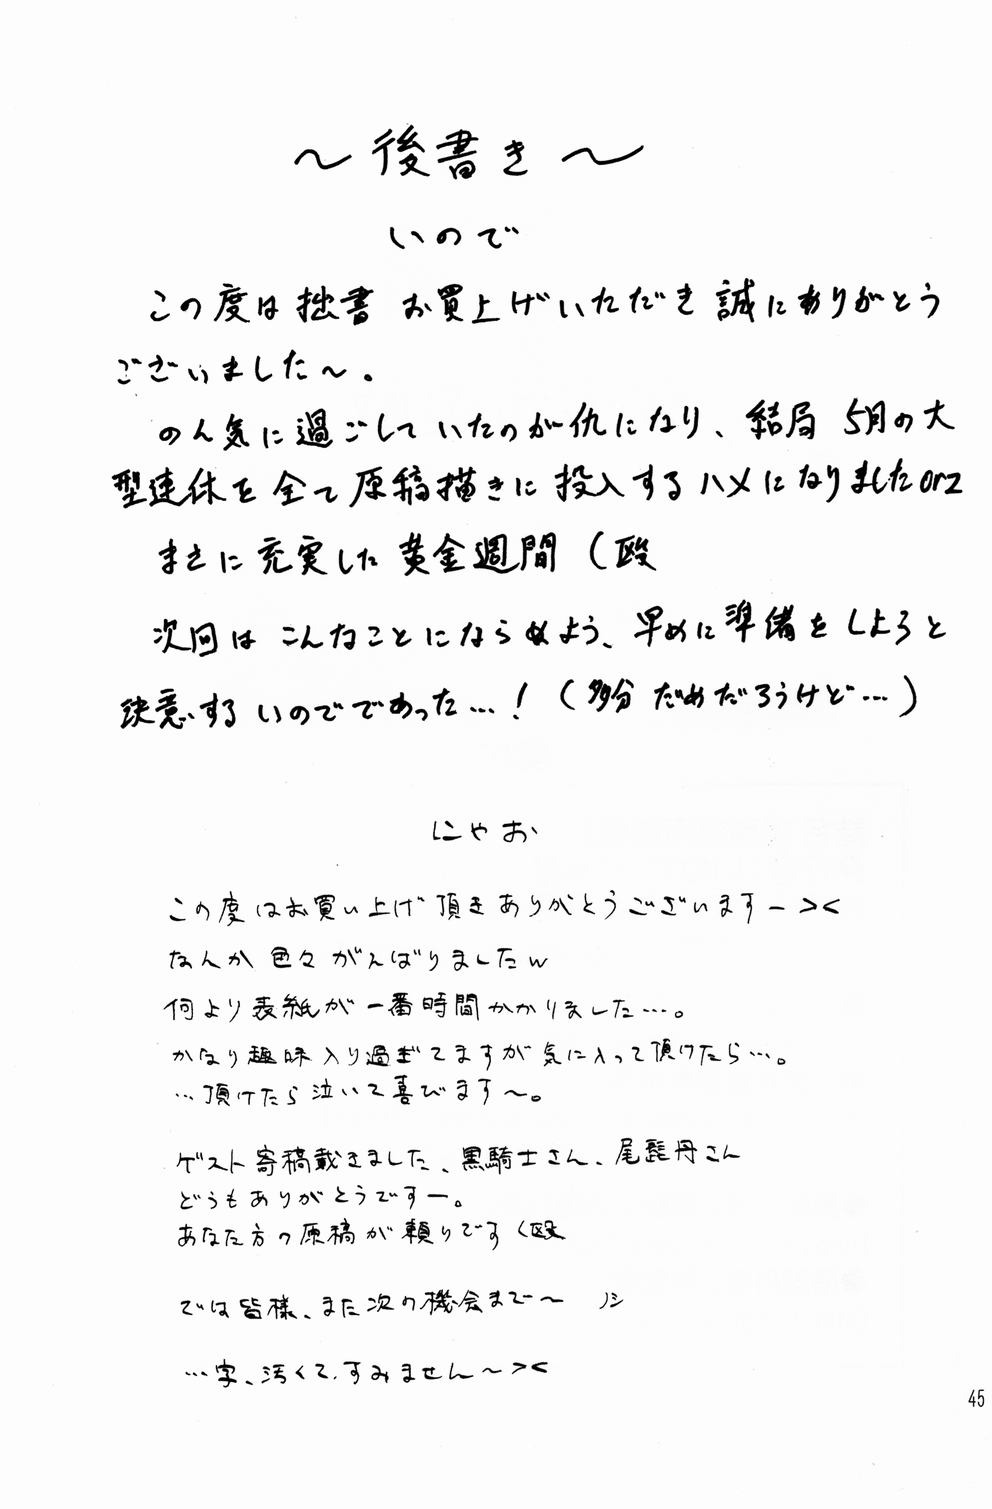 ～後書き～
いので
この度は拙書 お買上げいただき誠にありがとう
ございました～.
のん気に過ごしていたのが仇になり、結局 5月の大
型連休を全て原稿描きに投入するハメになりましたorz
まさに充実した黄金週間 (殴
次回は こんなことにならぬよう、早めに準備をしようと
決意するいのでであった…！(多分 だめだろうけど…)
にゃお
この度はお買い上げ頂きありがとうございますー><
なんか色々がんばりましたw
何より表紙が一番時間かかりました…。
かなり趣味入り過ぎてますが気に入って頂けたら…。
…頂けたら泣いて喜びます～。
ゲスト寄稿戴きました、黒騎士さん、尾髭丹さん
どうもありがとうですー。
あなた方の原稿が頼りです(殴
では皆様、また次の機会まで～ ﾉｼ
…字、汚くて、すみません～><
45